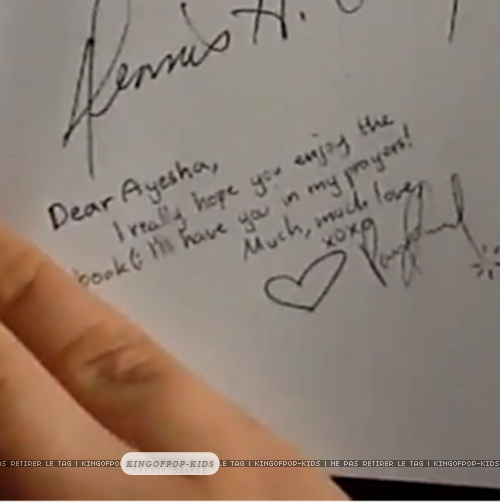 Dennis H.
Dear Ayesha,
I really hope you enjoy the
book (: I'll have you in my prayers!
Much, much love,
xoxo
AS RETIRER LE TAG | KINGOFPOP-KIDS LE TAG | KINGOFPOP-KIDS | NE PAS RETIRER LE TAG | KINGOFPOP-KIDS